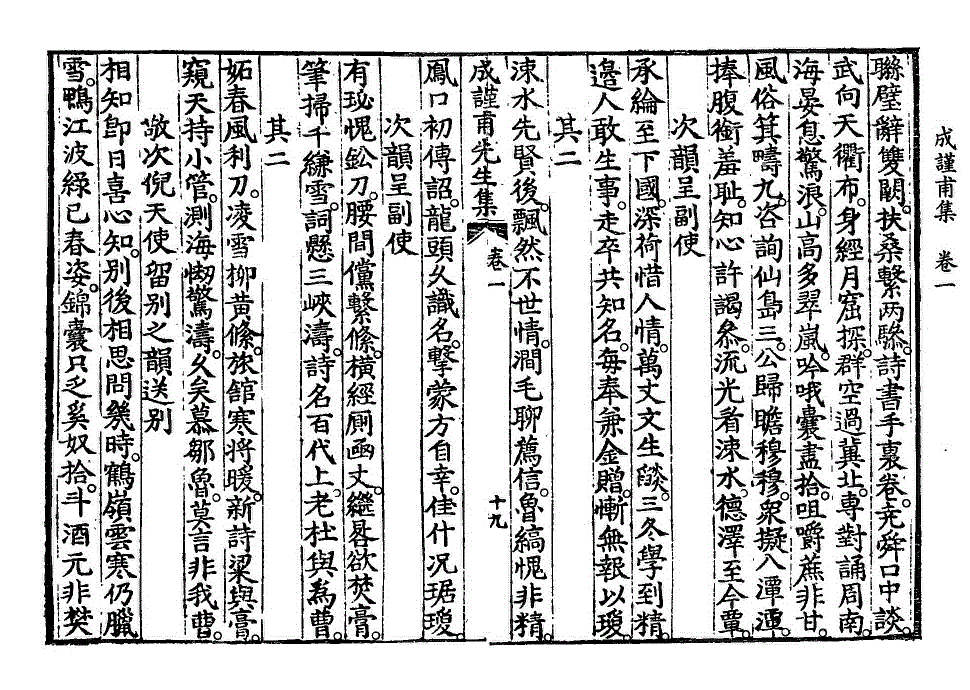 成謹甫集　卷一
聯璧辭雙闕。扶桑繫兩驂。詩書手裏卷。堯舜口中談。
武向天衢布。身經月窟探。群空過冀北。專對誦周南。
海晏息驚浪。山高多翠嵐。吟哦囊盡拾。咀嚼蔗非甘。
風俗箕疇九。咨詢仙島三。公歸瞻穆穆。衆擬八潭潭。
捧腹銜羞耻。知心許謁叅。流光看涑水。德澤至今覃。
次韻呈副使
承綸至下國。深荷惜人情。萬丈文生燄。三冬學到精。
邊人敢生事。走卒共知名。每奉兼金贈。慚無報以瓊。
其二
涑水先賢後。飄然不世情。澗毛聊薦信。魯縞愧非精。
成謹甫先生集　卷一　十九
鳳口初傳詔。龍頭久識名。擊蒙方自幸。佳什况琚瓊。
次韻呈副使
有玅愧鈆刀。腰間儻繫絛。橫經厠函丈。繼晷欲焚膏。
筆掃千縑雪。詞懸三峽濤。詩名百代上。老杜與爲曹。
其二
妬春風利刀。凌雪柳黃條。旅館寒將暖。新詩梁與膏。
窺天持小管。測海惚驚濤。久矣慕鄒魯。莫言非我曹。
敬次倪天使留別之韻送別
相知卽日喜心知。別後相思問幾時。鶴嶺雲寒仍臘
雪。鴨江波綠已春姿。錦囊只乏奚奴拾。斗酒元非樊